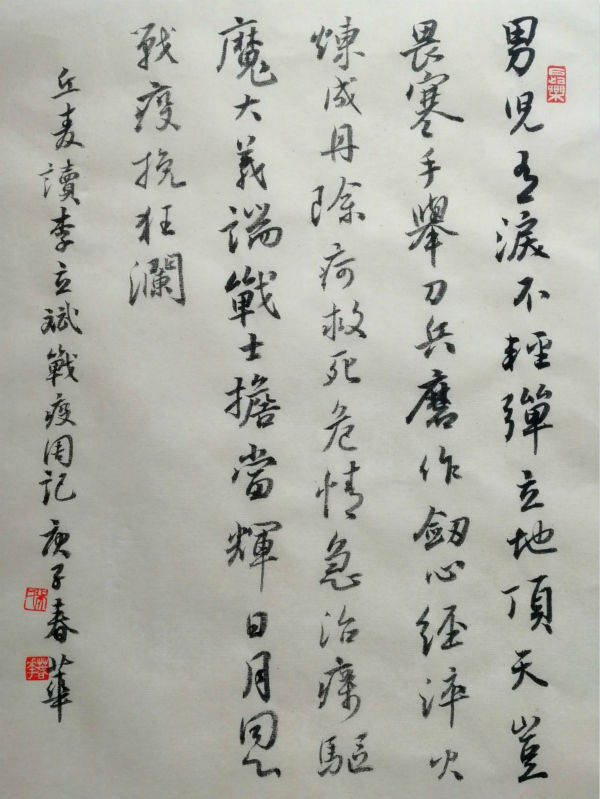 男兒有淚不輕彈立地頂天豈
畏寒手舉刀兵磨作劒心經淬火
煉成丹除疴救死危情急治療驅
魔大義端戰士擔當輝日月同心
戰疫挽狂瀾
丘麦讀李立斌戰疫周記 庚子春華